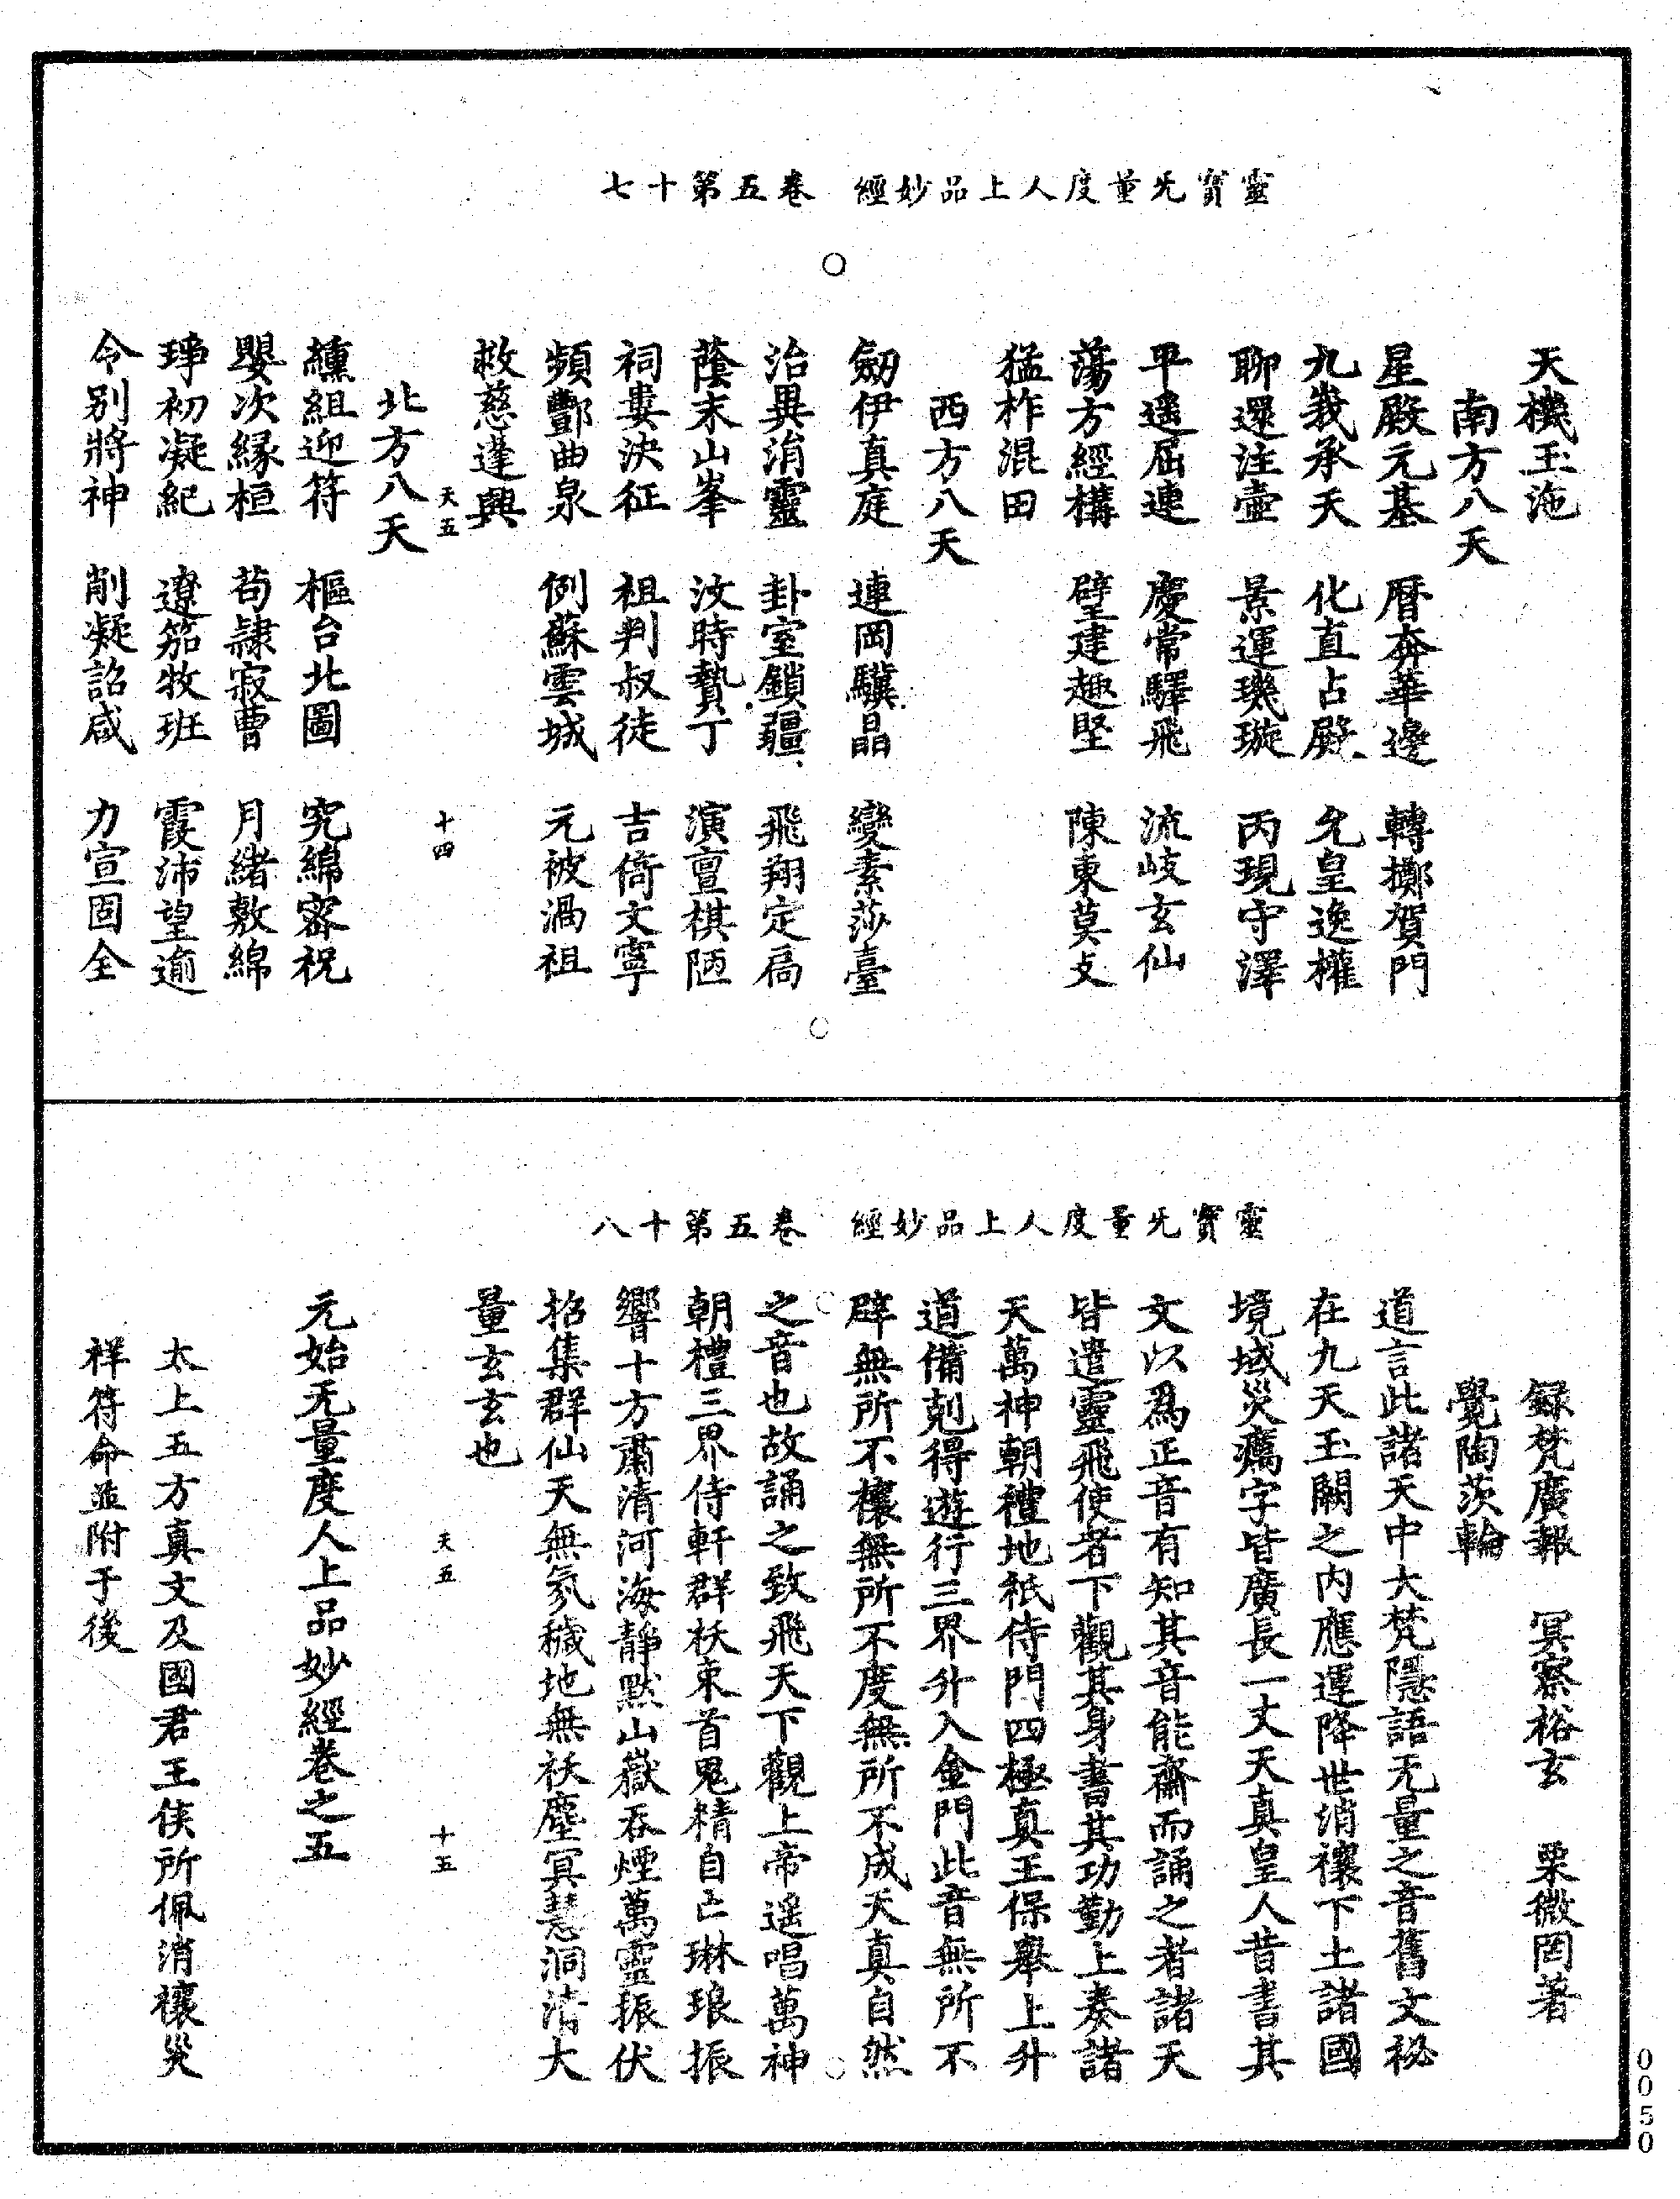 靈寶无量度人上品妙經　卷五第十七
天機玉沲
南方八天
星殿元基　曆奔華邊　轉擲賀門
九峩承天　化直占殿　允皇逸權
聊還注壷　景運璣璇　丙現守澤
平遥屈連　慶常驛飛　流岐玄仙
蕩方經構　壁建趣堅　陳東莫攴
猛柞混田
西方八天
劒伊真庭　連岡驥晶　變素莎臺
治異消靈　卦室鎖疆　飛翔定扃
蔭末山峯　汝時贄丁　演亶棋陋
祠婁決征　祖判叔徒　吉倚文寧
頻酆曲泉　例蘇雲城　元被渦祖
救慈逢興
天五　十四
北方八天
纁組迎符　樞台北圖　究綿密祝
嬰次緣桓　苟隷寂曹　月緒敷綿
琤初凝紀　遼笳牧班　霞沛望逾
令別將神　削凝詔咸　力宣固全
靈寶无量度人上品妙經　卷五第十八
録梵廣報　冥察裕玄　栗微罔著
覺陶茨輪
道言此諸天中大梵隱語无量之音舊文祕
在九天玉闕之内應運降世消禳下土諸國
境域災癘字皆廣長一丈天真皇人昔書其
文以爲正音有知其音能齋而誦之者諸天
皆遣靈飛使者下觀其身書其功勤上奏諸
天萬神朝禮地祇侍門四極真王保舉上升
道備剋得遊行三界升入金門此音無所不
辟無所不禳無所不度無所不成天真自然
之音也故誦之致飛天下觀上帝遥唱萬神
朝禮三界侍軒群祅束首鬼精自亡琳琅振
響十方肅清河海靜黙山嶽吞煙萬靈振伏
招集群仙天無氛穢地無祅塵冥慧洞清大
量玄玄也
天五　十五
元始无量度人上品妙經卷之五
太上五方真文及國君王侯所佩消禳災
祥符命並附于後
0050